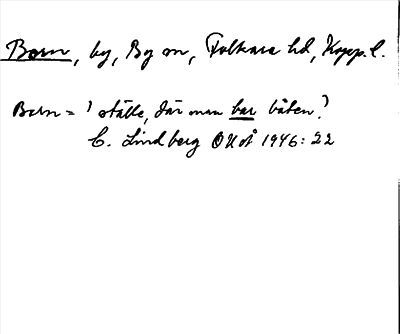 Born, by, By sn, Folkare hd, Kopp. l.
Born = 'ställe, där man bar båten'
C. Lindberg OUÅ 1946: 22